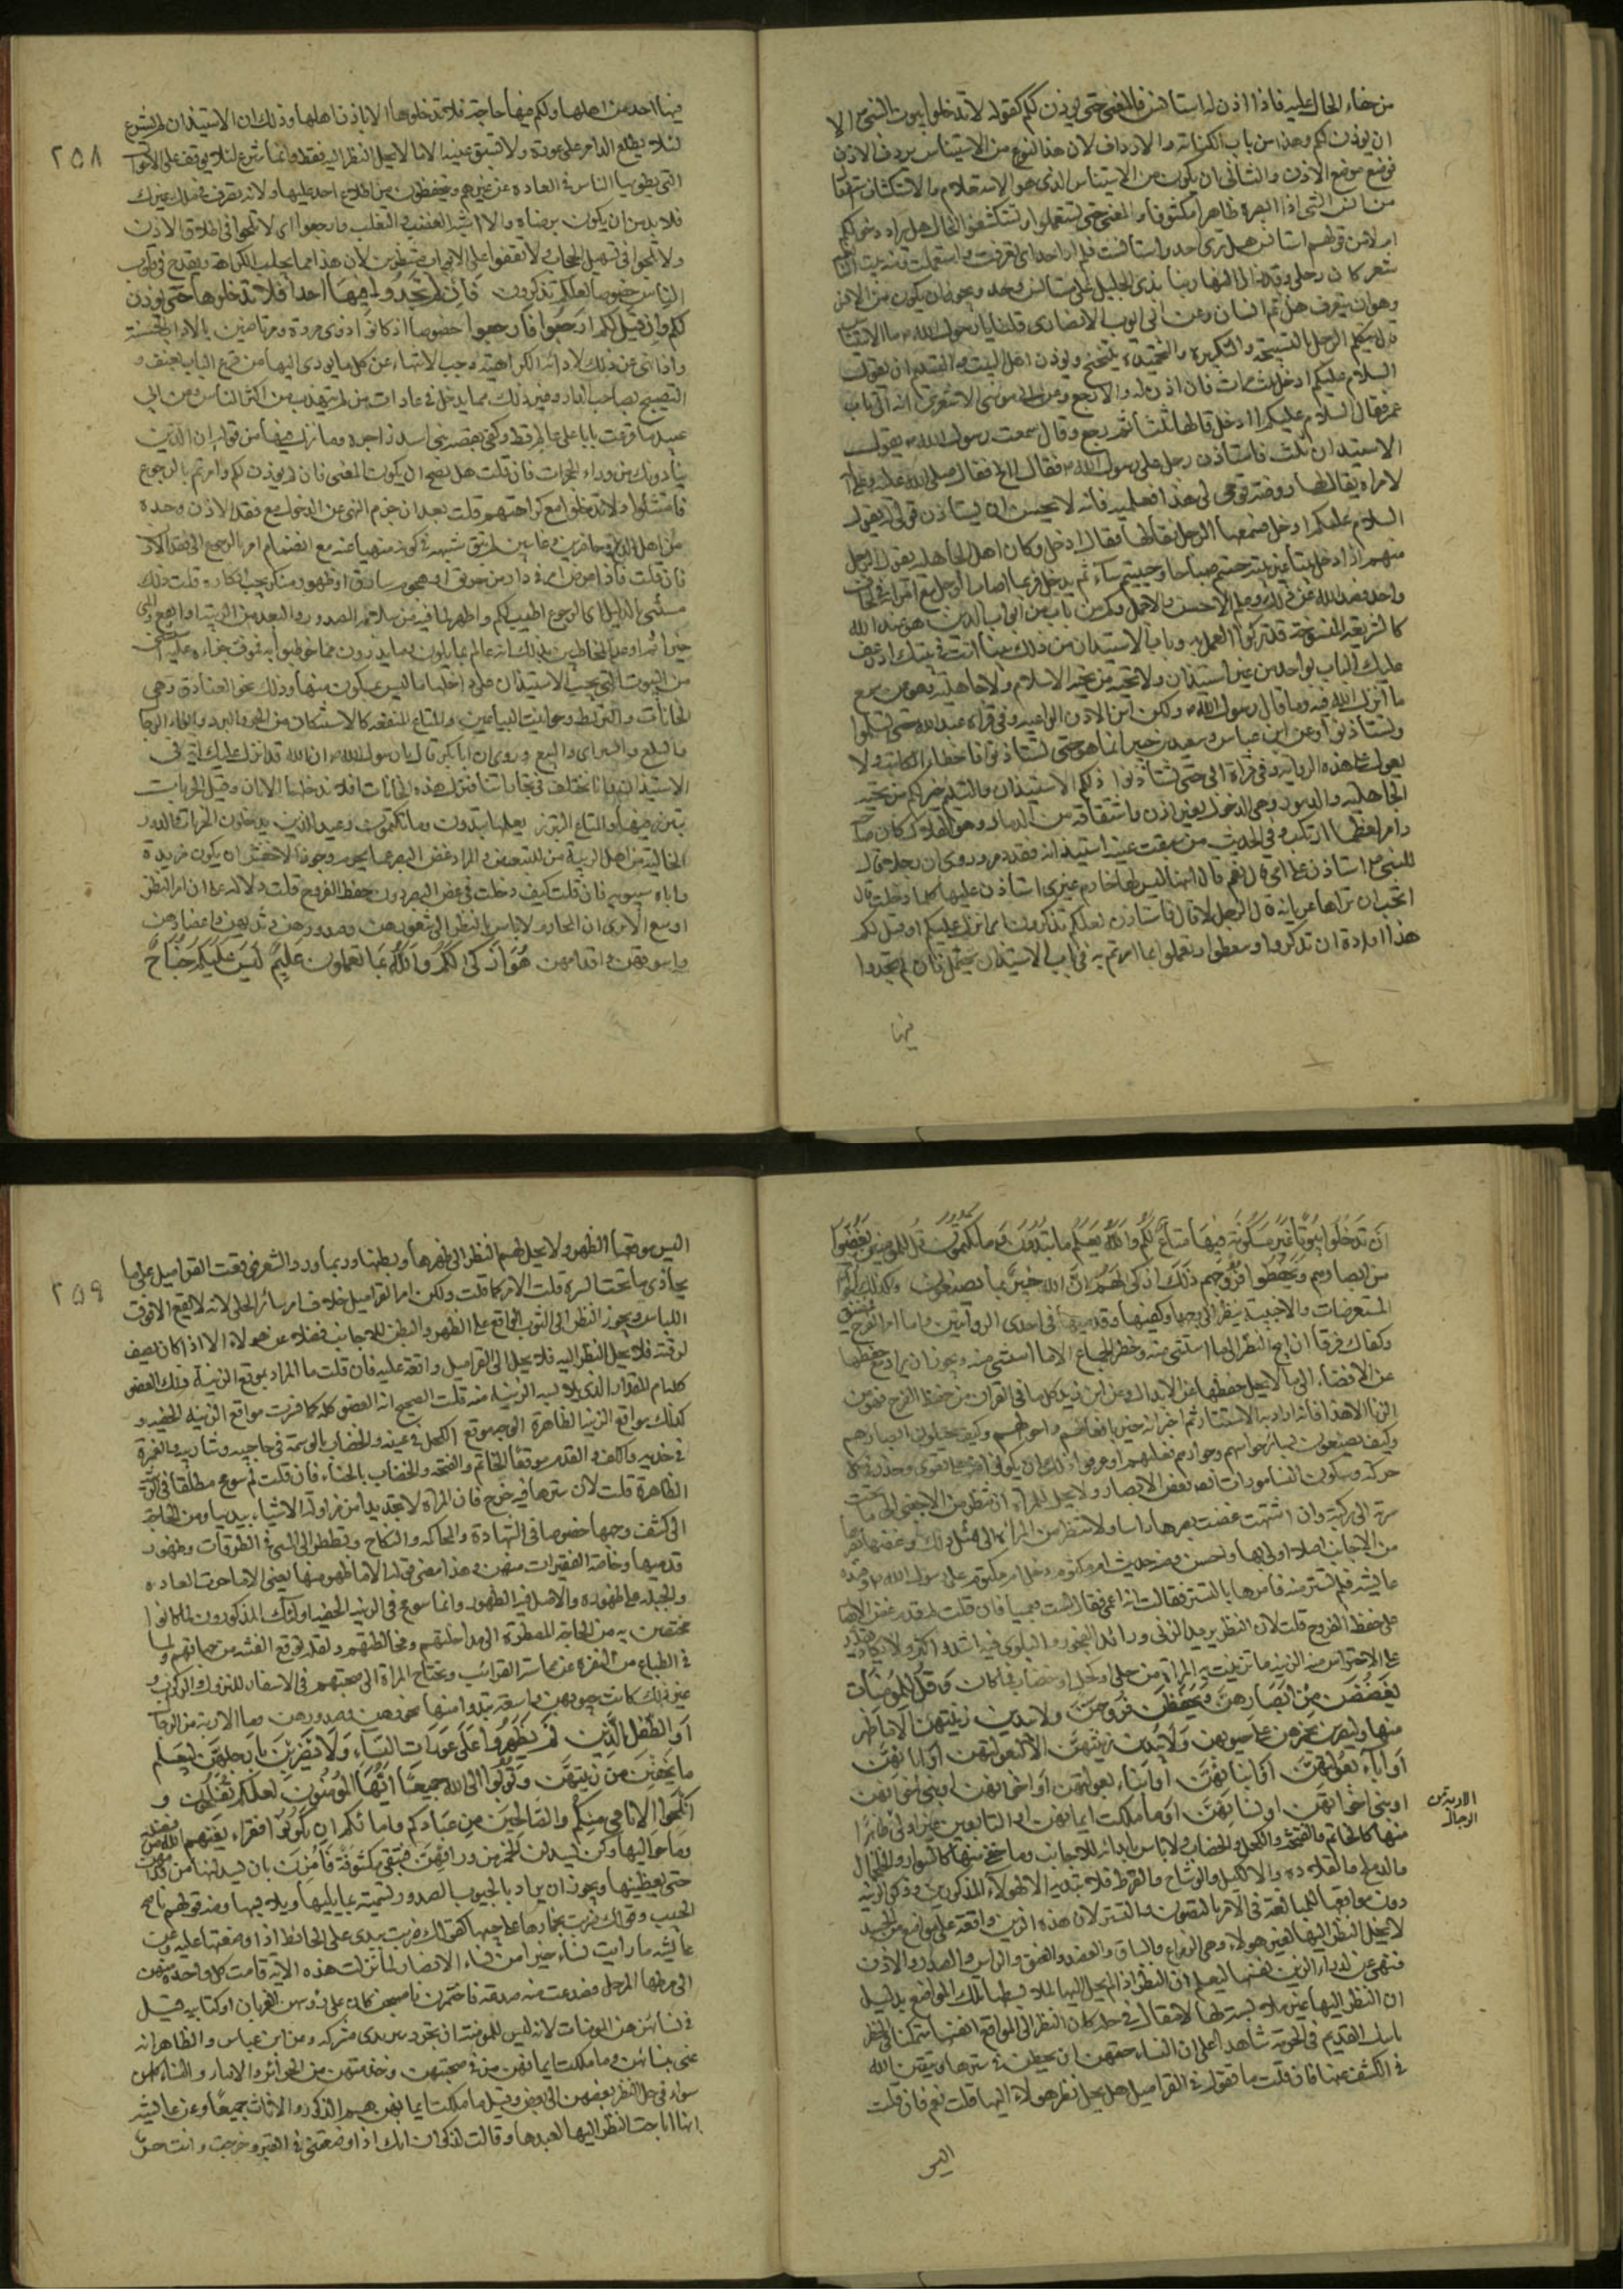 من خفاء الحال عليه فاذا اذن له استانس فالمعنى حتى يوذن لكم كقوله لا تدخلوا بيوت النبى الا
ان يوذن لكم وهذا من باب الكناية والارداف لان هذا النوع من الاستيناس يردف الاذن
فوضع موضع الاذن والثانى ان يكون من الاستيناس الذى هو الاستعلام والاستكشاف استفعال
من انس الشى اذا ابصره ظاهرا مكشوفا والمعنى حتى تستعلموا وتستكشفوا الحال هل يراد دخولكم
ام لا ومن قولهم استانس هل ترى احدا واستانست فلم ار احدا اى تعرفت واستعلمت ومنه بيت النابغة
شعر كان رحلى وقد زال النهار بنا بذى الجليل على مستانس وحد ويجوز ان يكون من الانس
وهو ان يتعرف هل ثم انسان وعن ابى ايوب الانصارى قلنا يا رسول الله ما الاستيناس
قال يتكلم الرجل بالتسبيحة والتكبيرة والتحميدة يتنحنح ويوذن اهل البيت والتسليم ان يقول
السلام عليكم ادخل ثلث مرات فان اذن له والا رجع وعن ابى موسى الاشعرى انه اتى باب
عمر فقال السلام عليكم ا ادخل قالها ثلثا ثم رجع وقال سمعت رسول الله يقول
الاستيذان ثلث فاستاذن رجل على رسول الله فقال االج فقال صلى الله عليه وعلى اله
لامراة يقال لها روضة قومى الى هذا فعلميه فانه لا يحسن ان يستاذن قولى له يقول
السلام عليكم ا ادخل فسمعها الرجل فقالها فقال ادخل وكان اهل الجاهلية يقول الرجل
منهم اذا دخل بيتا غير بيته حييتم صباحا وحييتم مساء ثم يدخل فربما اصاب الرجل مع امراته فى لحاف
واحد فصد الله عن ذلك وعلم الاحسن والاجمل وكم من باب من ابواب الدين هو عند الناس
كالشريعة المنسوخة قد تركوا العمل به وباب الاستيذان من ذلك بينا انت فى بيتك اذ رعف
عليك الباب بواحد من غير استيذان ولا تحية من تحيا الاسلام ولا جاهلية وهو ممن سمع
ما انزل الله فيه وما قال رسول الله ولكن اين الاذن الواعية وفى قراة عبد الله حتى تسلموا
وتستاذنوا وعن ابن عباس وسعيد بن جبير انما هو حتى تستاذنوا فاخطا الكاتب ولا
يعول على هذه الرواية وفى قراة ابى حتى تستاذنوا ذلكم الاستيذان والتسليم خير لكم من تحية
الجاهلية والدمور وهى الدخول بغير اذن واشتقاقه من الدمار وهو الهلاك كان صاحبه
دامر لعظم ما ارتكب وفى الحديث من سبقت عينه استيذانه فقد دمر وروى ان رجلا قال
للنبى استاذن على امى قال نعم قال انها ليس لها خادم غيرى استاذن عليها كلما دخلت قال
اتحب ان تراها عريانة قال الرجل لا قال فاستاذن لعلكم تذكرون اى انزل عليكم او قيل لكم
هذا ارادة ان تذكروا وتتعظوا وتعملوا بما امرتم به فى باب الاستيذان يحتمل فان لم تجدوا
فيها
٢٥٨
فيها احد من اهلها ولكم فيها حاجة فلا تدخلوها الا باذن اهلها وذلك ان الاستيذان لم يشرع
لئلا يطلع الدامر على عورة ولا تسبق عينه الى ما لا يحل النظر اليه فقط وانما شرع لئلا يوقف على الاحوال
التى يطويها الناس فى العادة عن غيرهم ويتحفظون من اطلاع احد عليها ولانه تصرف فى ملك غيرك
فلا بد من ان يكون برضاه والا اشبه الغصب والتغلب فارجعوا اى لا تلحوا فى اطلاق الاذن
ولا تلجوا فى تسهيل الحجاب ولا تقفوا على الابواب منتظرين لان هذا مما يجلب الكراهة ويقدح فى قلوب
الناس خصوصا لعلكم تذكرون فَاِنْ لَمْ تَجِدُوا فِيهَا احدا فلا تدخلوها حتى يوذن
لكم وان قيل لكم ارجعوا فارجعوا خصوصا اذ كانوا ذوى مروة ومرتاضين بالاداب الحسنة
واذا نهى عن ذلك لادائه الى الكراهية وجب الانتهاء عن كل ما يودى اليها من قرع الباب بعنف و
التصييح بصاحب الدار وغير ذلك مما يدخل فى عادات من لم يتهذب من اكثر الناس وعن ابى
عبيد ما قرعت بابا على عالم قط وكفى بقصة بنى اسد زاجرة وما نزل فيها من قوله ان الذين
ينادونك من وراء الحجرات فان قلت هل يصح ان يكون المعنى فان لم يوذن لكم وامرتم بالرجوع
فامتثلوا ولا تدخلوا مع كراهتهم قلت بعد ان جزم النهى عن الدخول مع فقد الاذن وحده
من اهل الدار حاضرين وغايبين لم تبق شبهة فى كونه منهيا عنه مع انضمام امر بالرجوع الى فقد الاذن
فان قلت فاذا عرض امر فى دار من حريق او هجوم سارق او ظهور منكر يجب انكاره قلت ذلك
مستثنى بالدليل اى الرجوع اطيب لكم واطهر لما فيه من سلامة الصدور والبعد من الريبة او انفع وانمى
خيرا ثم اوعد المخاطبين بذلك بانه عالم بما ياتون وما يذرون مما خوطبوا به فموف جزاءه عليه استثنى
من البيوت التى يجب الاستيذان على داخلها ما ليس بمسكون منها وذلك نحو الفنادق وهى
الخانات والربط وحوانيت البياعين والمتاع المنفعة كالاستكنان من الحر والبرد وايواء الرحال
والسلع والشراى والبيع وروى ان ابا بكر قال يا رسول الله ان الله قد انزل عليك اية فى
الاستيذان وانا نختلف فى تجاراتنا فننزل هذه الخانات افلا ندخلها الا باذن وقيل الخربات
يتبرز فيها والمتاع التبرز يعلم ما تبدون وما تكتمون وعيد للذين يدخلون الخربات والدور
الخالية من اهل الريبة من للتبعيض والمراد غض البصر عما يحرم وجوز الاخفش ان يكون مزيدة
واباه سيبويه فان قلت كيف دخلت فى غض البصر دون حفظ الفروج قلت دلالة على ان امر النظر
اوسع الا ترى ان المحارم لا باس بالنظر الى شعورهن وصدورهن وثديهن واعضادهن
واسوقهن واقدامهن هُوَ اَزْكى لَكُمْ وَاللّٰهُ بِمَا تَعملون عَلِيمٌ لَيْسَ عَلَيْكُمْ جُنَاحٌ
اَنْ تَدْخُلُوا بُيُوتًا غَيْرَ مَسْكُونَةٍ فِيهَا مَتَاعٌ لَكُمْ وَاللّٰهُ يَعْلَمُ مَا تُبْدُونَ وَمَا تَكْتُمُونَ قُلْ لِلْمُومِنِينَ يَغُضُّوا
مِنْ ابصارهم وَيَحْفَظُوا فُرُوجَهُمْ ذٰلِكَ ازكى لَهُمْ اِنَّ الله خَبِيرٌ بِمَا يَصْنَعُونَ وكذلك الجوارى
المستعرضات والاجنبية ينظر الى وجهها وكفيها وقدميها فى احدى الروايتين واما امر الفرج فمضيق
وكفاك فرقا ان ابيح النظر الا ما استثنى منه وحظر الجماع الا ما استثنى منه ويجوز ان يراد مع حفظها
عن الافضاء الى ما لا يحل حفظها عن الابداء وعن ابن زيد كل ما فى القران من حفظ الفرج فهو من
الزنا الا هذا فانه اراد به الاستتار ثم اخبر انه خبير بافعالهم واحوالهم وكيف يجيلون ابصارهم
وكيف يصنعون بسائر حواسهم وجوارحهم فعليهم اذ عرفوا ذلك ان يكونوا منه على تقوى وحذر فى كل
حركة وسكون النسا مورات ايضا بغض الابصار ولا يحل للمراة ان تنظر من الاجنبى الى ما تحت
سرته الى ركبته وان اشتهت غضت بصرها راسا ولا تنظر من المراة الا الى مثل ذلك وغضها بصرها
من الاجانب اصلا اولى بها واحسن ومنه حديث ابن ام مكتوم دخل ابن ام مكتوم على رسول الله وعنده
عائشة فلم تستتر منه فامرها بالتستر فقالت انه اعمى فقال الست عمياء فان قلت لم قدم غض الابصار
على حفظ الفروج قلت لان النظر بريد الزنى ورائد الفجور والبلوى فيه اشد واكثر ولا يكاد يقدر
على الاحتراس منه الزينة ما تزينت به المراة من حلى او كحل او خضاب فما كان وَقُلْ لِلْمُؤْمِنَاتِ
يَغْضُضْنَ مِنْ اَبْصَارِهِنَّ وَيَحْفَظْنَ فُرُوجَهُنَّ ولا يبدين زينتهن الا ما ظهر
منها وليضربن بخمرهن على جيوبهن وَلَا يُبْدِينَ زِينَتَهُنَّ اِلَّا لِبُعُولَتِهِنَّ اَوْ ابائهن
اَوْ اٰبَاءِ بُعُولَتِهِنَّ اَوْ ابنائهن اَوْ اَبْنَاءِ بعولتهن اَوْ اخوانهن او بنى اخوانهن
او بنى اخواتهن او نسائهن او ما ملكت ايمانهن او التابعين غير اولى ظاهرا
الاربة من
الرجال
منها كالخاتم والفتخة والكحل والخضاب فلا باس بابدائه للاجانب وما خفى منها كالسوار والخلخال
والدملج والقلادة والاكليل والوشاح والقرط فلا تبديه الا لهولاء المذكورين وذكر الزينة
دون مواقعها للمبالغة فى الامر بالتصون والتستر لان هذه الزين واقعة على مواضع من الجسد
لا يحل النظر اليها لغير هولاء وهى الذراع والساق والعضد والعنق والراس والصدر والاذن
فنهى عن ابداء الزين نفسها ليعلم ان النظر اذا لم يحل اليها لملابستها تلك المواقع بدليل
ان النظر اليها غير ملابسة لها لا مقال فى حله كان النظر الى المواقع انفسها متمكنا فى الحظر
ثابت القدم فى الحرمة شاهدا على ان النساء حقهن ان يحتطن فى سترها ويتقين الله
فى الكشف عنها فان قلت ما تقول فى القراميل هل يحل نظر هولاء اليها قلت نعم فان قلت
اليس
٢٥٩
اليس موقعها الظهر ولا يحل لهم النظر الى ظهرها وبطنها وربما ورد الشعر فوقعت القراميل على ما
يحاذى ما تحت السرة قلت الامر كما قلت ولكن امر القراميل خلاف امر سائر الحلى لانه لا يقع الا فوق
اللباس ويجوز النظر الى الثوب الواقع على الظهر والبطن للاجانب فضلا عن هولاء الا اذا كان يصف
لرقته فلا يحل النظر اليه فلا يحل الى القراميل واقعة عليه فان قلت ما المراد بموقع الزينة ذلك العضو
كله ام المقدار الذى تلابسه الزينة منه قلت الصحيح انه العضو كله كما فسرت مواقع الزينة الخفية و
كذلك مواقع الزينة الظاهرة الوجه موقع الكحل فى عينيه والخضاب بالوسمة فى حاجبيه وشاربيه والغمرة
فى خديه والكف والقدم موقعا الخاتم والفتخة والخضاب بالحناء فان قلت لم سومح مطلقا فى الزينة
الظاهرة قلت لان سترها فيه حرج فان المراة لا تجد بدا من مزاولة الاشياء بيديها ومن الحاجة
الى كشف وجهها خصوصا فى الشهادة والمحاكمة والنكاح وتضطر الى المشى فى الطرقات وظهور
قدميها وخاصة الفقيرات منهن وهذا معنى قوله الا ما ظهر منها يعنى الا ما جرت العادة
والجبلة على ظهوره والاصل فيه الظهور وانما سومح فى الزينة الخفية اولئك المذكورون لما كانوا
مختصين به من الحاجة المضطرة الى مداخلتهم ومخالطتهم ولقلة توقع الفتنة من جهاتهم ولما
فى الطباع من النفرة عن مماسة القرائب وتحتاج المراة الى صحبتهم فى الاسفار للنزول والركوب و
غير ذلك كانت جيوبهن واسعة تبدو منها نحورهن وصدورهن وما الاربة من الرجال
اَوِ الطِّفْلِ الَّذِينَ لَمْ يَظْهَرُوا عَلَى عَوْرَاتِ النِّسَاءِ وَلَا يَضْرِبْنَ بِاَرْجُلِهِنَّ لِيُعْلَمَ
مَا يُخْفِينَ مِنْ زِينَتِهِنَّ وَتُوبُوا الى الله جَمِيعًا اَيُّهَا الْمُؤْمِنُونَ لَعَلَّكُمْ تُفْلِحُونَ و
اَنْكِحُوا الْاَيَامَى مِنْكُمْ وَالصَّالِحِينَ مِنْ عِبَادِكُمْ وامائكم ان يَكُونُوا فقراء يُغْنِهِمُ الله من فضله
وما حواليها وكن يسدلن الخمر من ورائهن فتبقى مكشوفة فامرن بان يسدلنها من قدامهن
حتى يغطينها ويجوز ان يراد بالجيوب الصدور تسمية بما يليها ويلابسها ومنه قولهم ناصح
الجيب وقولك ضربت بخمارها على جيبها كقولك ضربت بيدى على الحائط اذا وضعتها عليه وعن
عائشة ما رايت نساء خيرا من نساء الانصار لما نزلت هذه الاية قامت كل واحدة منهن
الى مرطها المرحل فصدعت منه صدعة فاختمرن فاصبحن كان على رؤسهن الغربان او كتابية قيل
فى نسائهن هن المومنات لانه ليس للمومنة ان تتجرد بين يدى مشركة وعن ابن عباس والظاهر انه
عنى بنسائهن وما ملكت ايمانهن من فى صحبتهن وخدمتهن من الحرائر والاماء والنساء كلهن
سواء فى حل النظر بعضهن الى بعض وقيل ما ملكت ايمانهن هم الذكور والاناث جميعا وعن عائشة
انها اباحت النظر اليها لعبدها وقالت لذكوان انك اذا وضعتنى فى القبر وخرجت فانت حر